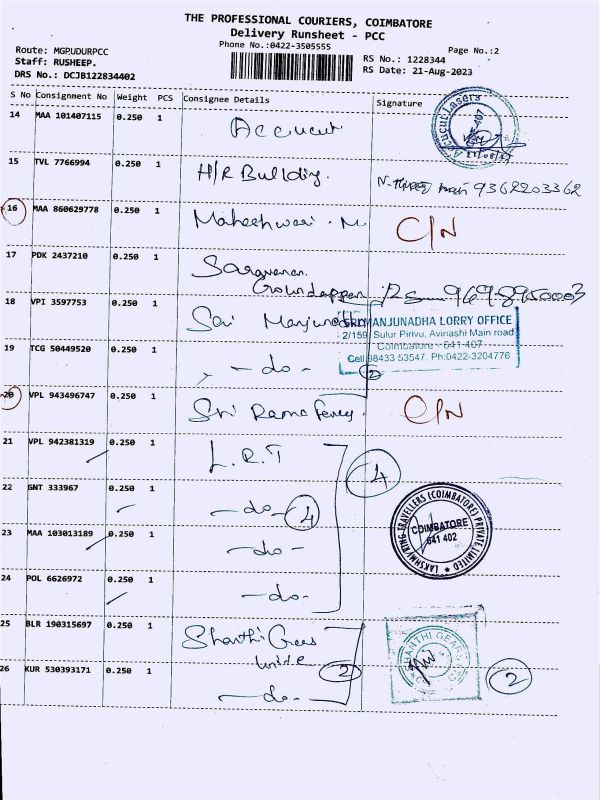 THE PROFESSIONAL COURIERS, COIMBATORE
Delivery Runsheet - PCC
Phone No.:0422-3505555
Page No.:2
Route: MGPUDURPCC
Staff: RUSHEEP.
DRS No.: DCJB122834402
RS No.: 1228344
RS Date: 21-Aug-2023
S No Consignment No Weight PCS Consignee Details Signature
14 MAA 101407115 0.250 1 Accucut
Accucut Lasers
15 TVL 7766994 0.250 1 H/R Building. 9362203362
16 MAA 860629778 0.250 1 Maheshwari . M. C/N
17 PDK 2437210 0.250 1 Saravanan
Goundappan 9698950003
18 VPI 3597753 0.250 1 Sai Manjunadha
SRI MANJUNADHA LORRY OFFICE
2/159, Sulur Pirivu, Avinashi Main road
Coimbatore - 641 407
Cell 98433 53547, Ph:0422-3204776
19 TCG 50449520 0.250 1 - do - 2
20 VPL 943496747 0.250 1 Sri Rama C/N
21 VPL 942381319 0.250 1 L.R.T 4
22 GNT 333967 0.250 1 - do - 4
23 MAA 103013189 0.250 1 - do -
LAKSHMI RING TRAVELLERS (COIMBATORE) PRIVATE LIMITED
COIMBATORE
641 402
24 POL 6626972 0.250 1 - do -
25 BLR 190315697 0.250 1 Shanthi Gears
SHANTHI GEARS
26 KUR 530393171 0.250 1 - do - 2 2